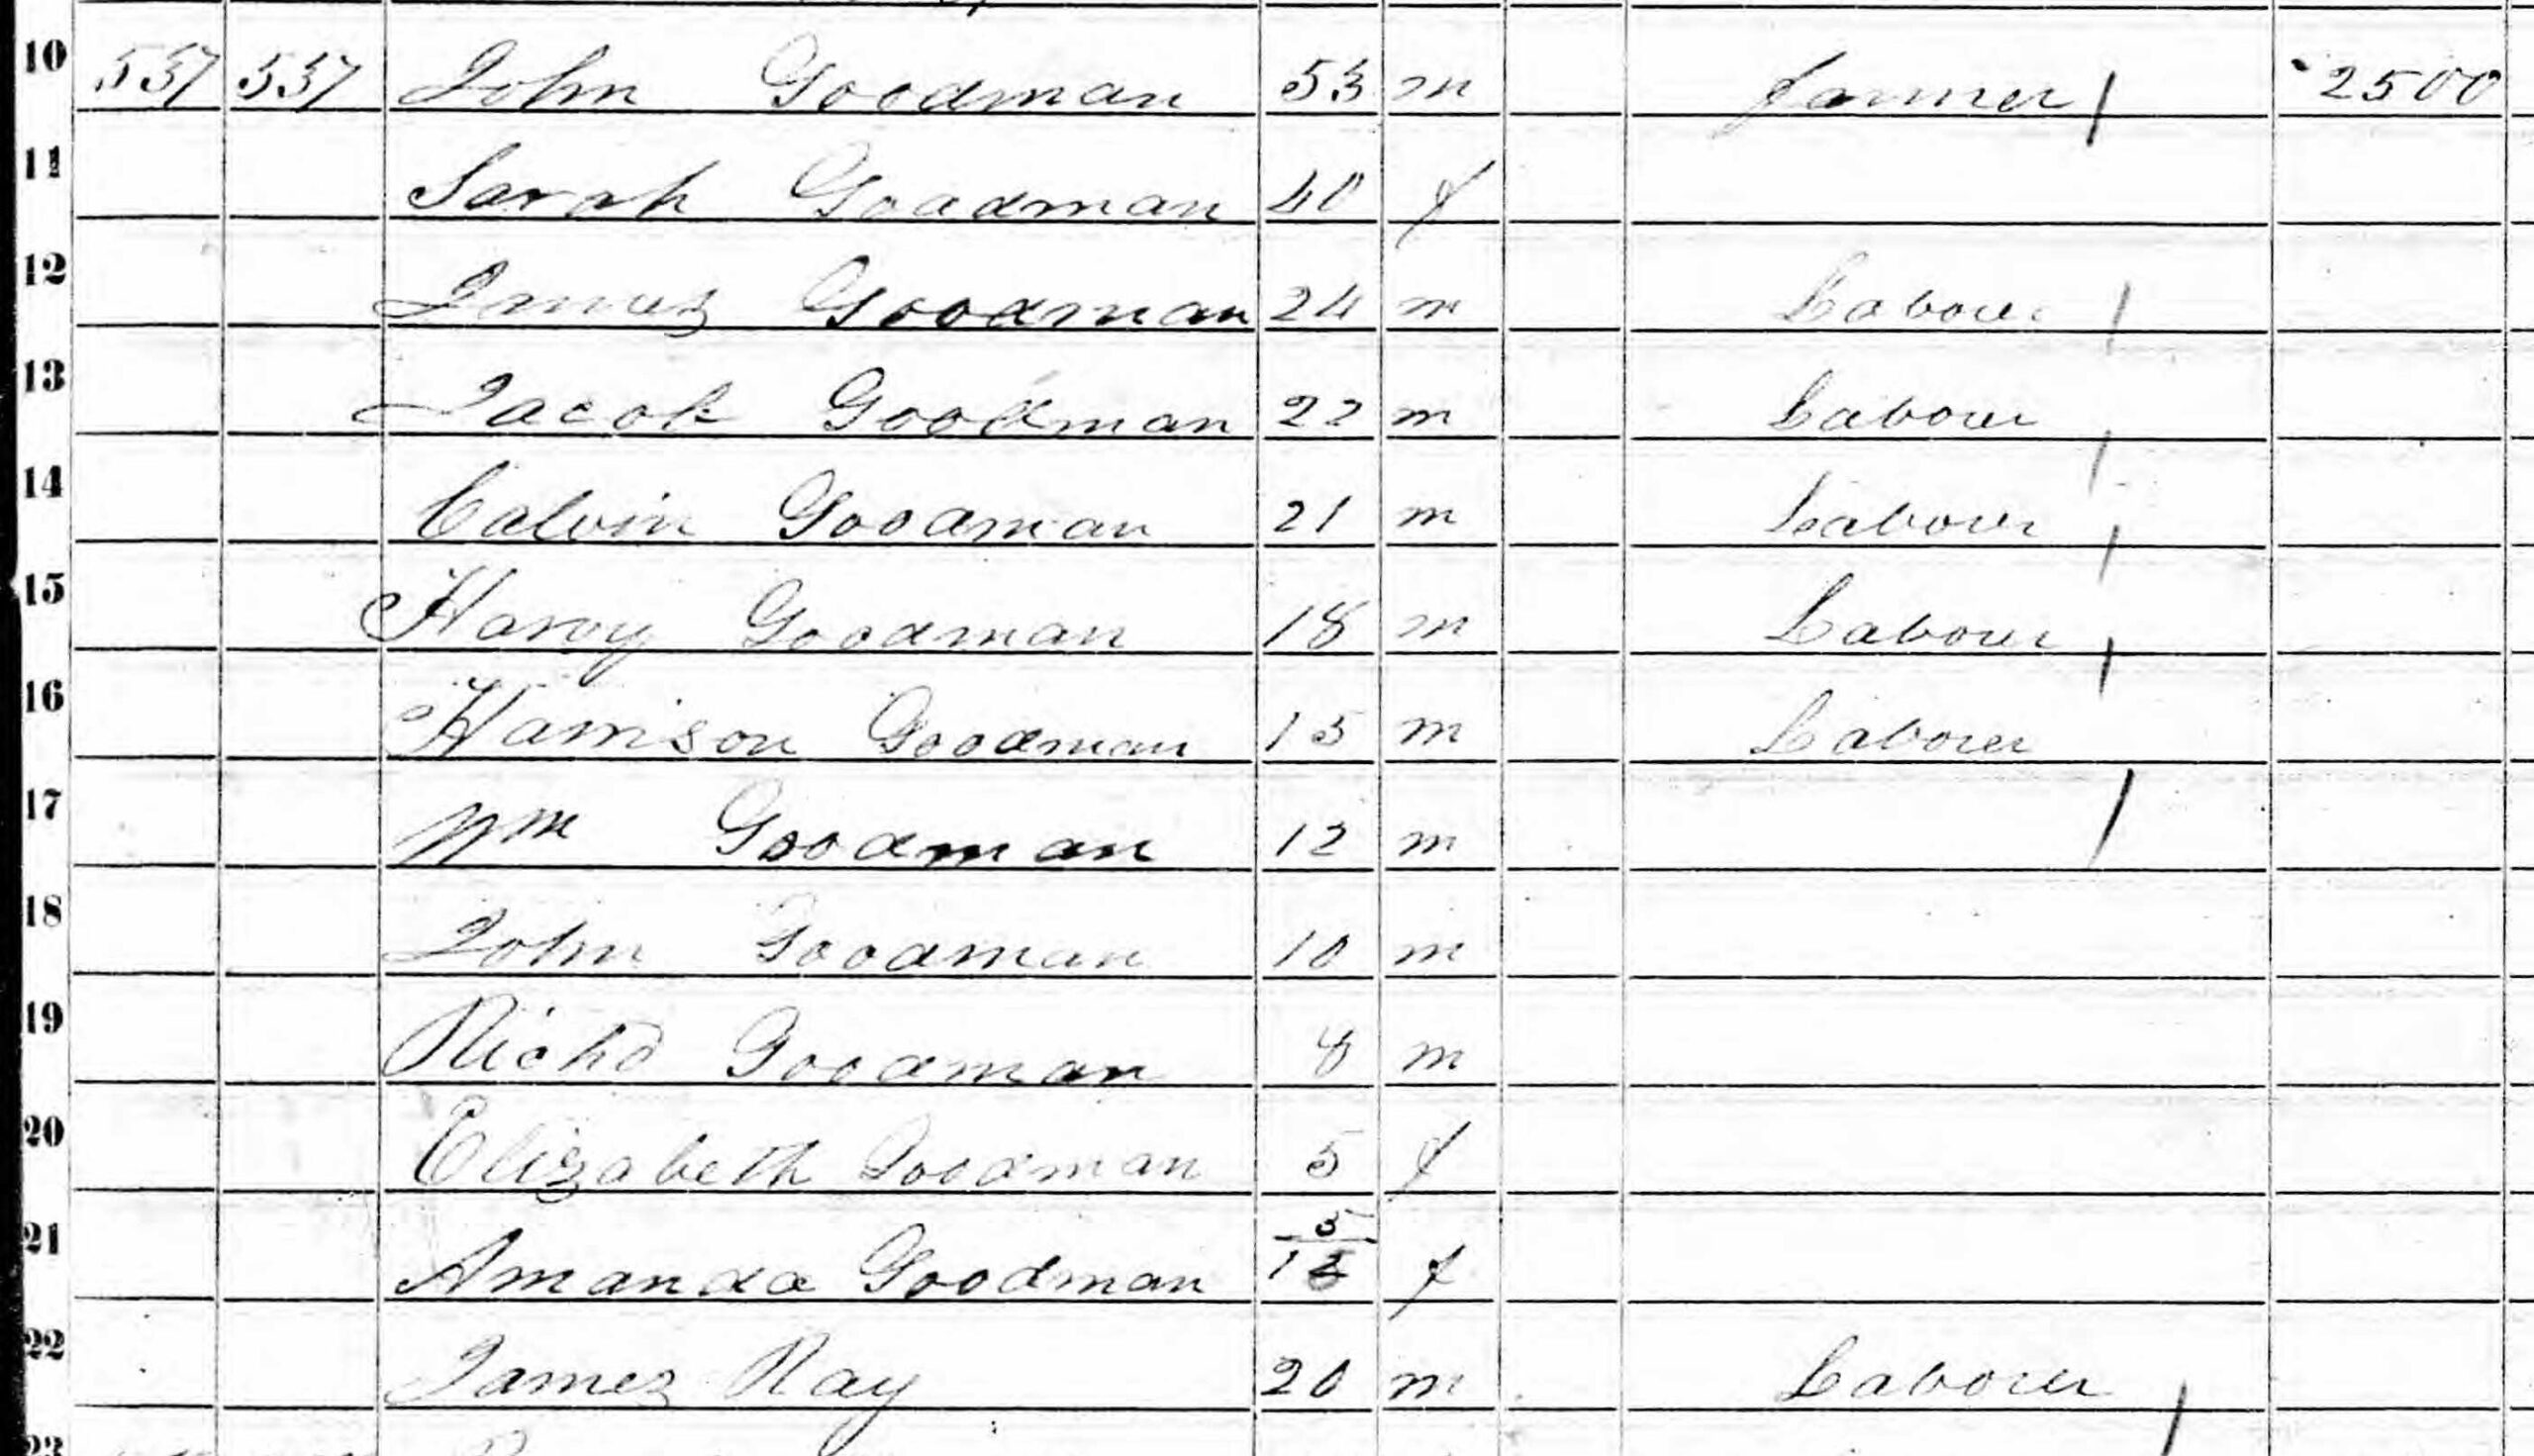 10 537 537 John Goodman 53 m farmer 2500
11 Sarah Goodman 40 f
12 James Goodman 24 m Labourer
13 Jacob Goodman 22 m Labourer
14 Calvin Goodman 21 m Labourer
15 Harvy Goodman 18 m Labourer
16 Harrison Goodman 15 m Labourer
17 Wm Goodman 12 m
18 John Goodman 10 m
19 Richd Goodman 8 m
20 Elizabeth Goodman 5 f
21 Amanda Goodman 5/12 f
22 James Ray 20 m Labourer
23